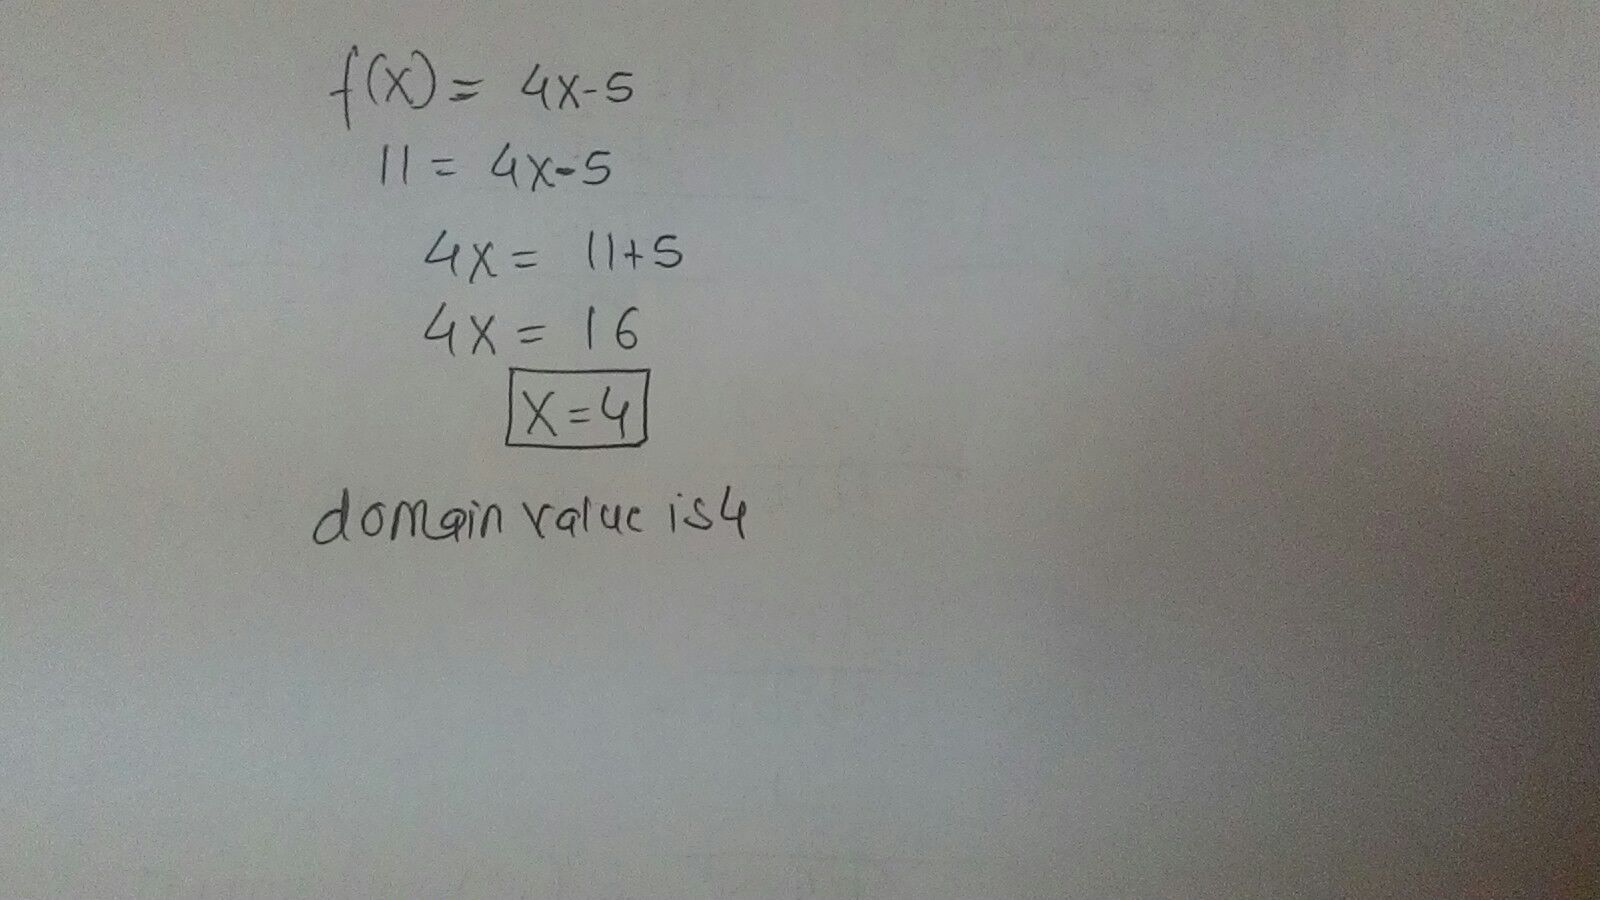 f(x) = 4x-5
11 = 4x-5
4x = 11+5
4x = 16
x=4
domain value is 4